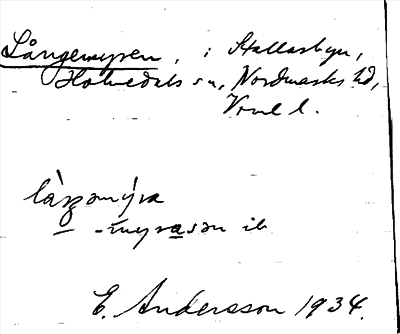 Långemyren, i Stallarbyn,
Holmedals sn, Nordmarks hd,
Vrml l.
làŋŋəmýra
— -myrasən ib
E. Andersson 1934.